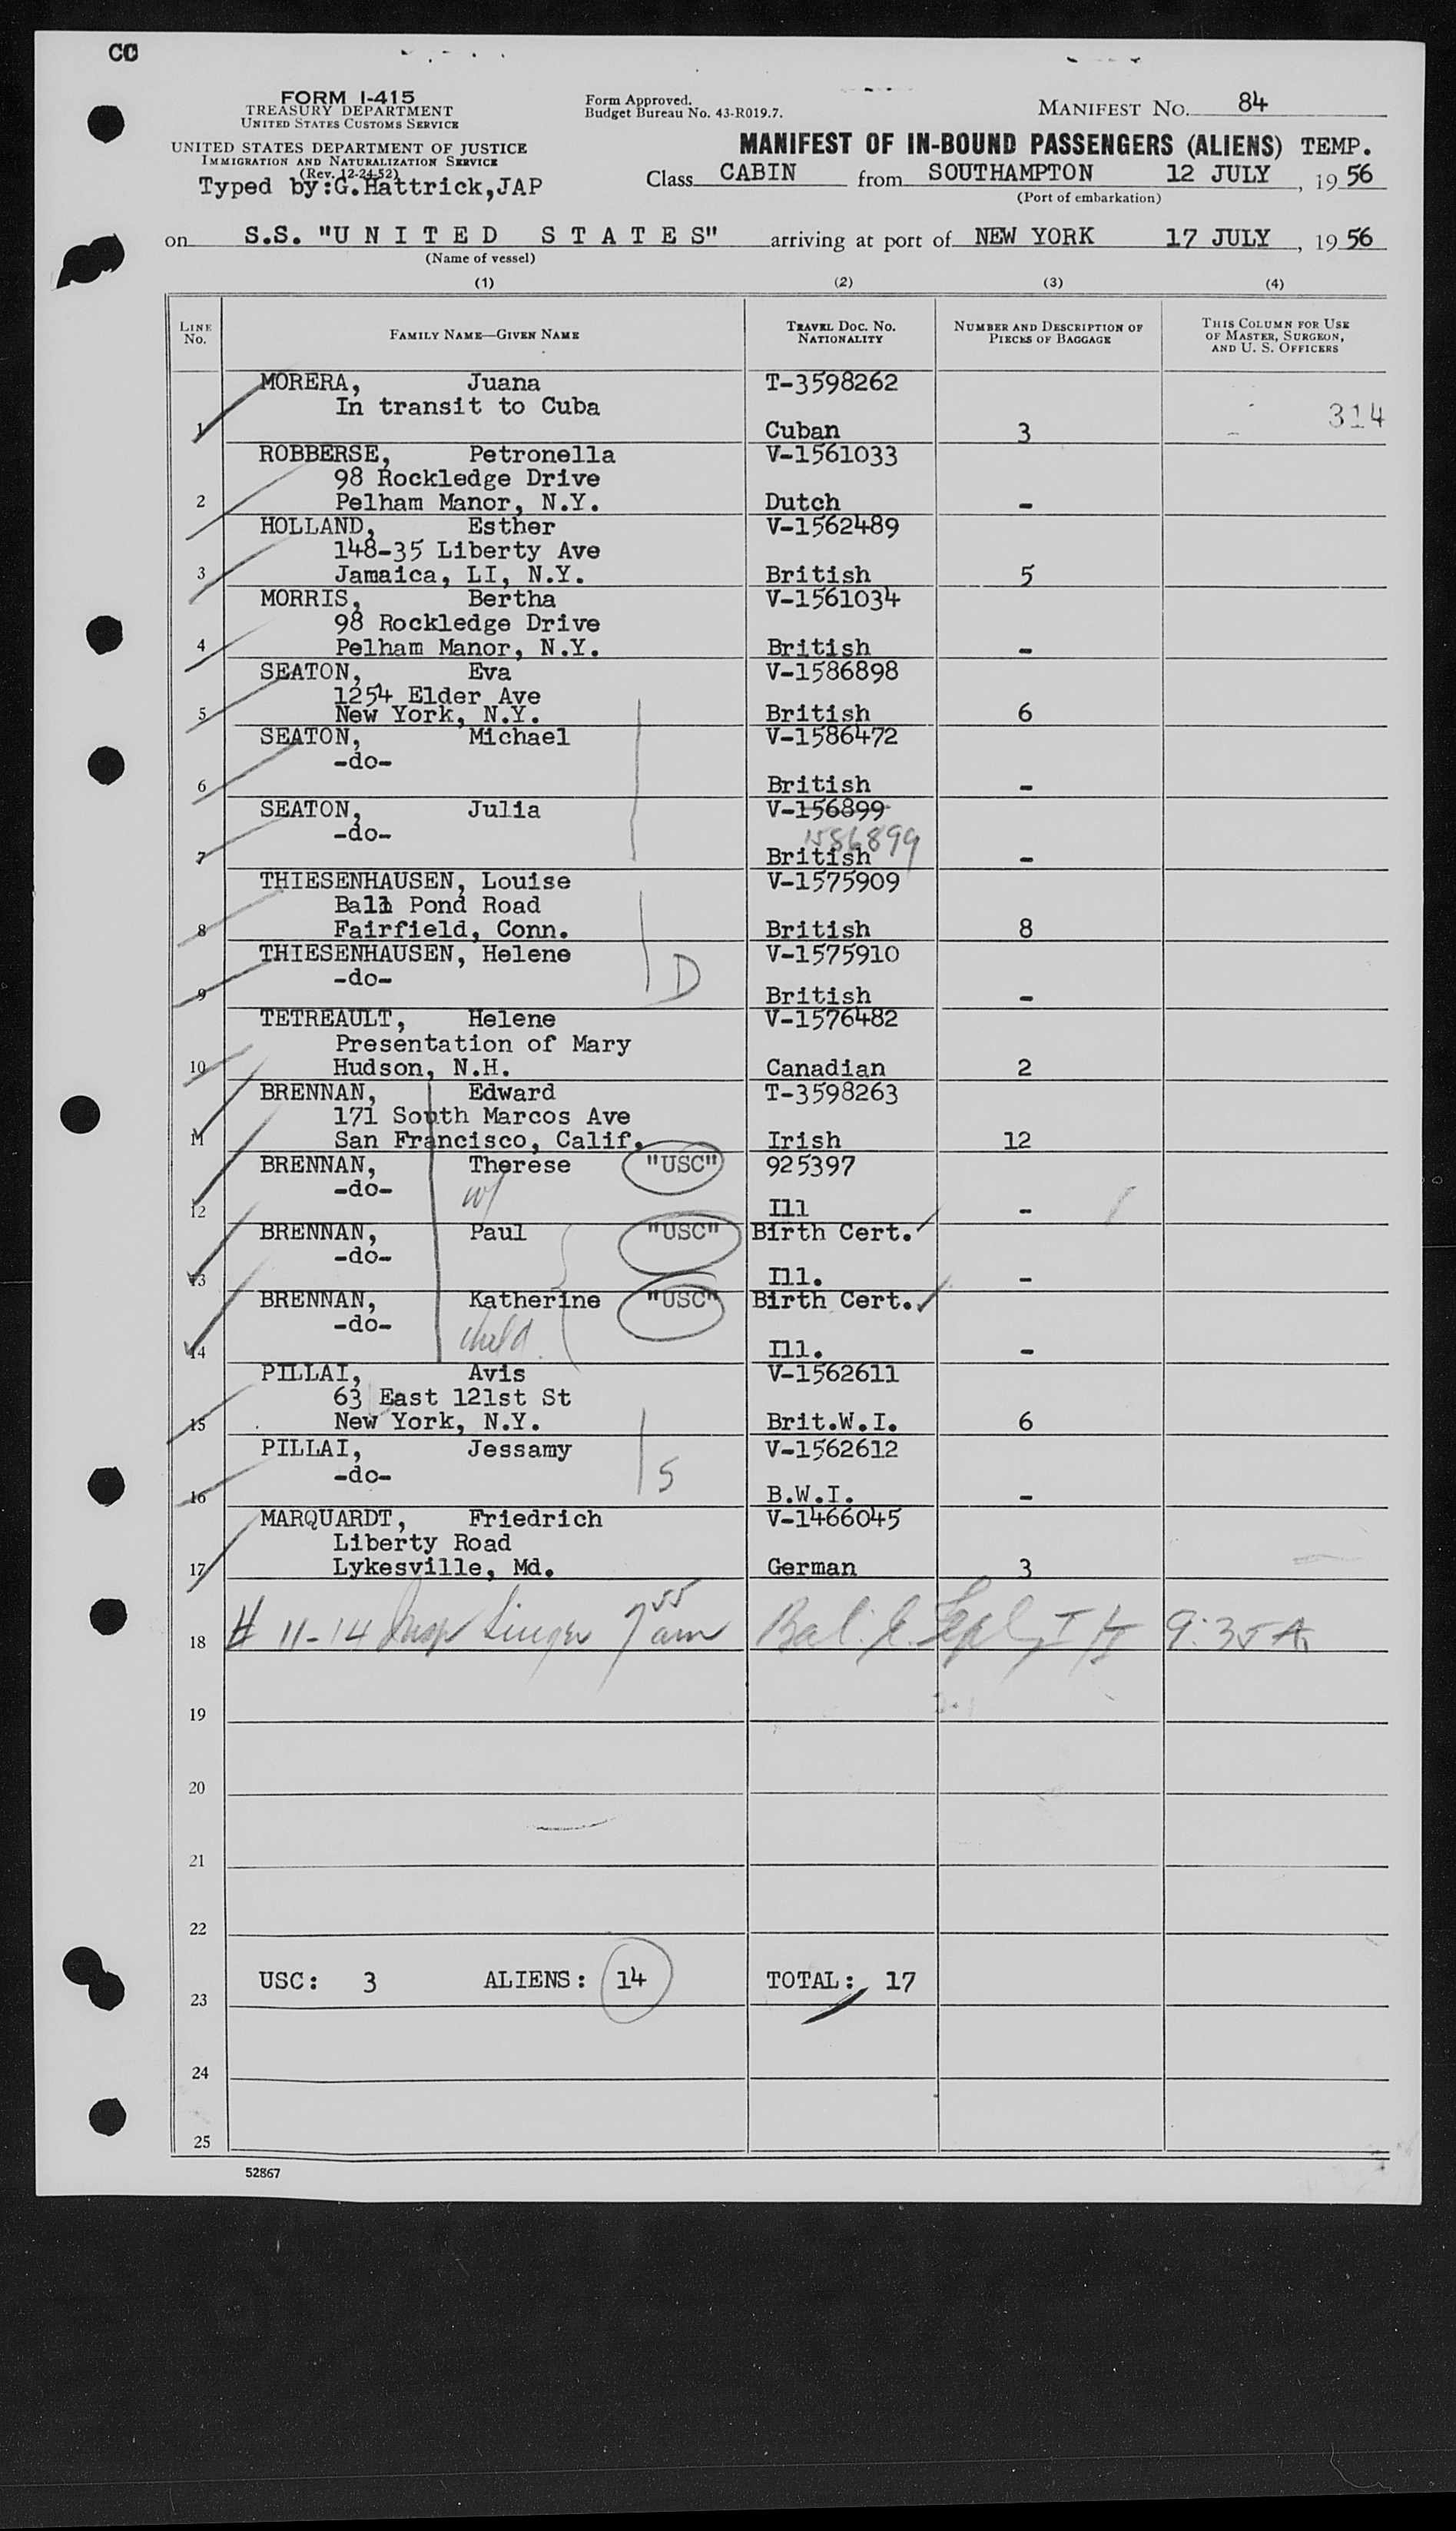 CC
FORM I-415
TREASURY DEPARTMENT
UNITED STATES CUSTOMS SERVICE
UNITED STATES DEPARTMENT OF JUSTICE
IMMIGRATION AND NATURALIZATION SERVICE
(Rev. 12-24-52)
Typed by:G.Hattrick,JAP
Form Approved.
Budget Bureau No. 43-R019.7.
MANIFEST NO. 84
MANIFEST OF IN-BOUND PASSENGERS (ALIENS) TEMP.
Class CABIN from SOUTHAMPTON 12 JULY, 1956
(Port of embarkation)
on S.S. "U N I T E D S T A T E S" arriving at port of NEW YORK 17 JULY, 1956
(Name of vessel)
(1) (2) (3) (4)
LINE No. FAMILY NAME—GIVEN NAME TRAVEL DOC. NO. NATIONALITY NUMBER AND DESCRIPTION OF PIECES OF BAGGAGE THIS COLUMN FOR USE OF MASTER, SURGEON, AND U. S. OFFICERS
MORERA, Juana T-3598262
In transit to Cuba 314
1 Cuban 3
ROBBERSE, Petronella V-1561033
98 Rockledge Drive
2 Pelham Manor, N.Y. Dutch -
HOLLAND, Esther V-1562489
148-35 Liberty Ave
3 Jamaica, LI, N.Y. British 5
MORRIS, Bertha V-1561034
98 Rockledge Drive
4 Pelham Manor, N.Y. British -
SEATON, Eva V-1586898
1254 Elder Ave
5 New York, N.Y. British 6
SEATON, Michael V-1586472
-do-
6 British -
SEATON, Julia V-156899
-do- 1586899
7 British -
THIESENHAUSEN, Louise V-1575909
Ball Pond Road
8 Fairfield, Conn. British 8
THIESENHAUSEN, Helene V-1575910
-do- D
9 British -
TETREAULT, Helene V-1576482
Presentation of Mary
10 Hudson, N.H. Canadian 2
BRENNAN, Edward T-3598263
171 South Marcos Ave
11 San Francisco, Calif. Irish 12
BRENNAN, Therese "USC" 925397
-do- w/
12 Ill -
BRENNAN, Paul "USC" Birth Cert.
-do-
13 Ill. -
BRENNAN, Katherine "USC" Birth Cert.
-do- child
14 Ill. -
PILLAI, Avis V-1562611
63 East 121st St
15 New York, N.Y. Brit.W.I. 6
PILLAI, Jessamy V-1562612
-do- S
16 B.W.I. -
MARQUARDT, Friedrich V-1466045
Liberty Road
17 Lykesville, Md. German 3
18 # 11-14 Insp Singer 7 55 am Bal. 9:35 A
19
20
21
22
23 USC: 3 ALIENS: 14 TOTAL: 17
24
25
52867